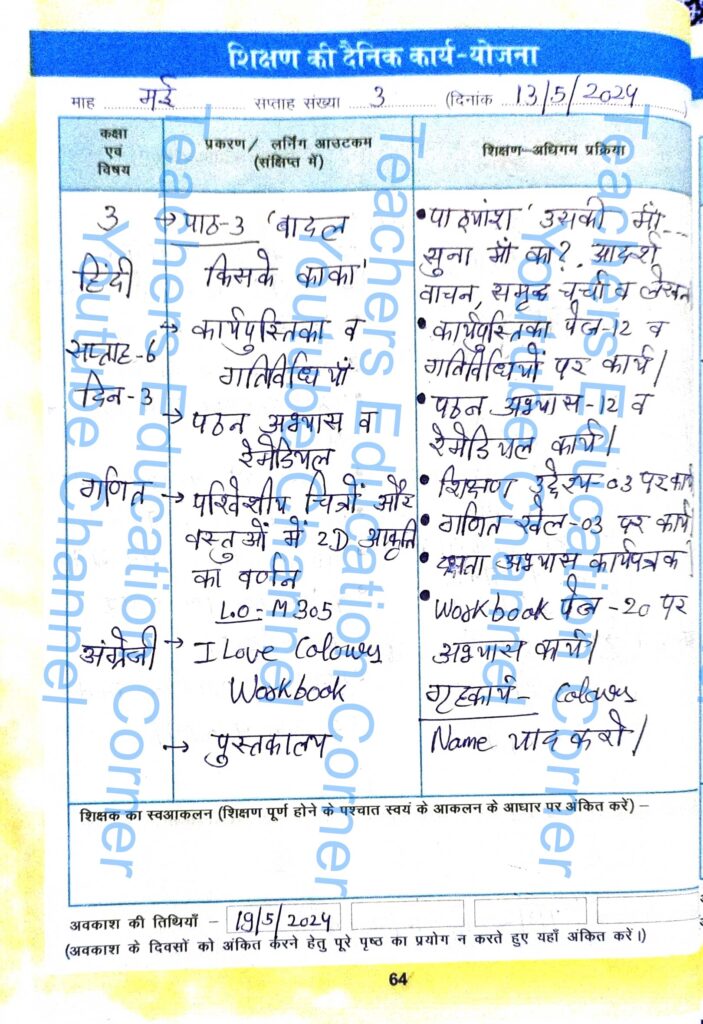 शिक्षण की दैनिक कार्य-योजना
माह मई सप्ताह संख्या 3 (दिनांक 13/5/2024
कक्षा एवं विषय
प्रकरण/ लर्निंग आउटकम (संक्षिप्त में)
शिक्षण-अधिगम प्रक्रिया
3
हिंदी
सप्ताह-6
दिन-3
→ पाठ-3 'बादल
किसके काका'
→ कार्यपुस्तिका व
गतिविधियाँ
→ पठन अभ्यास व
रेमेडियल
• पाठ्यांश 'उसकी माँ...
सुना माँ का?' आदर्श
वाचन, समृद्ध चर्चा व लेखन
• कार्यपुस्तिका पेज-12 व
गतिविधियों पर कार्य।
• पठन अभ्यास-12 व
रेमेडियल कार्य।
गणित
→ परिवेशीय चित्रों और
वस्तुओं में 2D आकृति
का वर्णन
L.O-M305
• शिक्षण उद्देश्य-03 पर कार्य
• गणित खेल-03 पर कार्य
• दक्षता अभ्यास कार्यपत्रक
अंग्रेजी
→ I Love Colours
Workbook
→ पुस्तकालय
• Workbook पेज-20 पर
अभ्यास कार्य।
गृहकार्य- Colours
Name याद करो।
शिक्षक का स्वआकलन (शिक्षण पूर्ण होने के पश्चात स्वयं के आकलन के आधार पर अंकित करें) –
अवकाश की तिथियाँ – 19/5/2024
(अवकाश के दिवसों को अंकित करने हेतु पूरे पृष्ठ का प्रयोग न करते हुए यहाँ अंकित करें।)
64
Teachers Education Corner
Youtube Channel
Teachers Education Corner
Youtube Channel
Teachers Education Corner
Youtube Channel